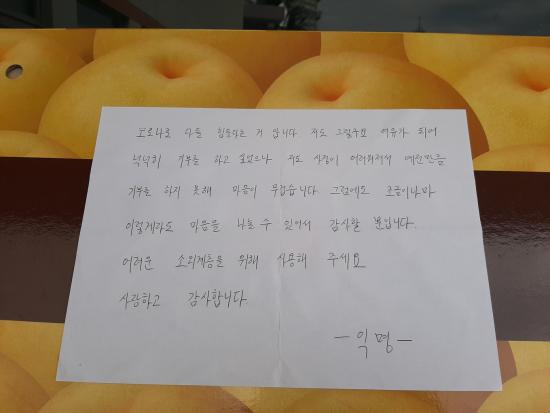 코로나로 다들 힘들다는 거 압니다 저도 그럴수록 여유가 되어
넉넉히 기부를 하고 싶었으나 저도 사정이 어려워져서 예전만큼
기부를 하지 못해 마음이 무겁습니다 그럼에도 조금이나마
이렇게라도 마음을 나눌 수 있어서 감사할 뿐입니다.
어려운 소외계층을 위해 사용해 주세요
사랑하고 감사합니다.
-익명-